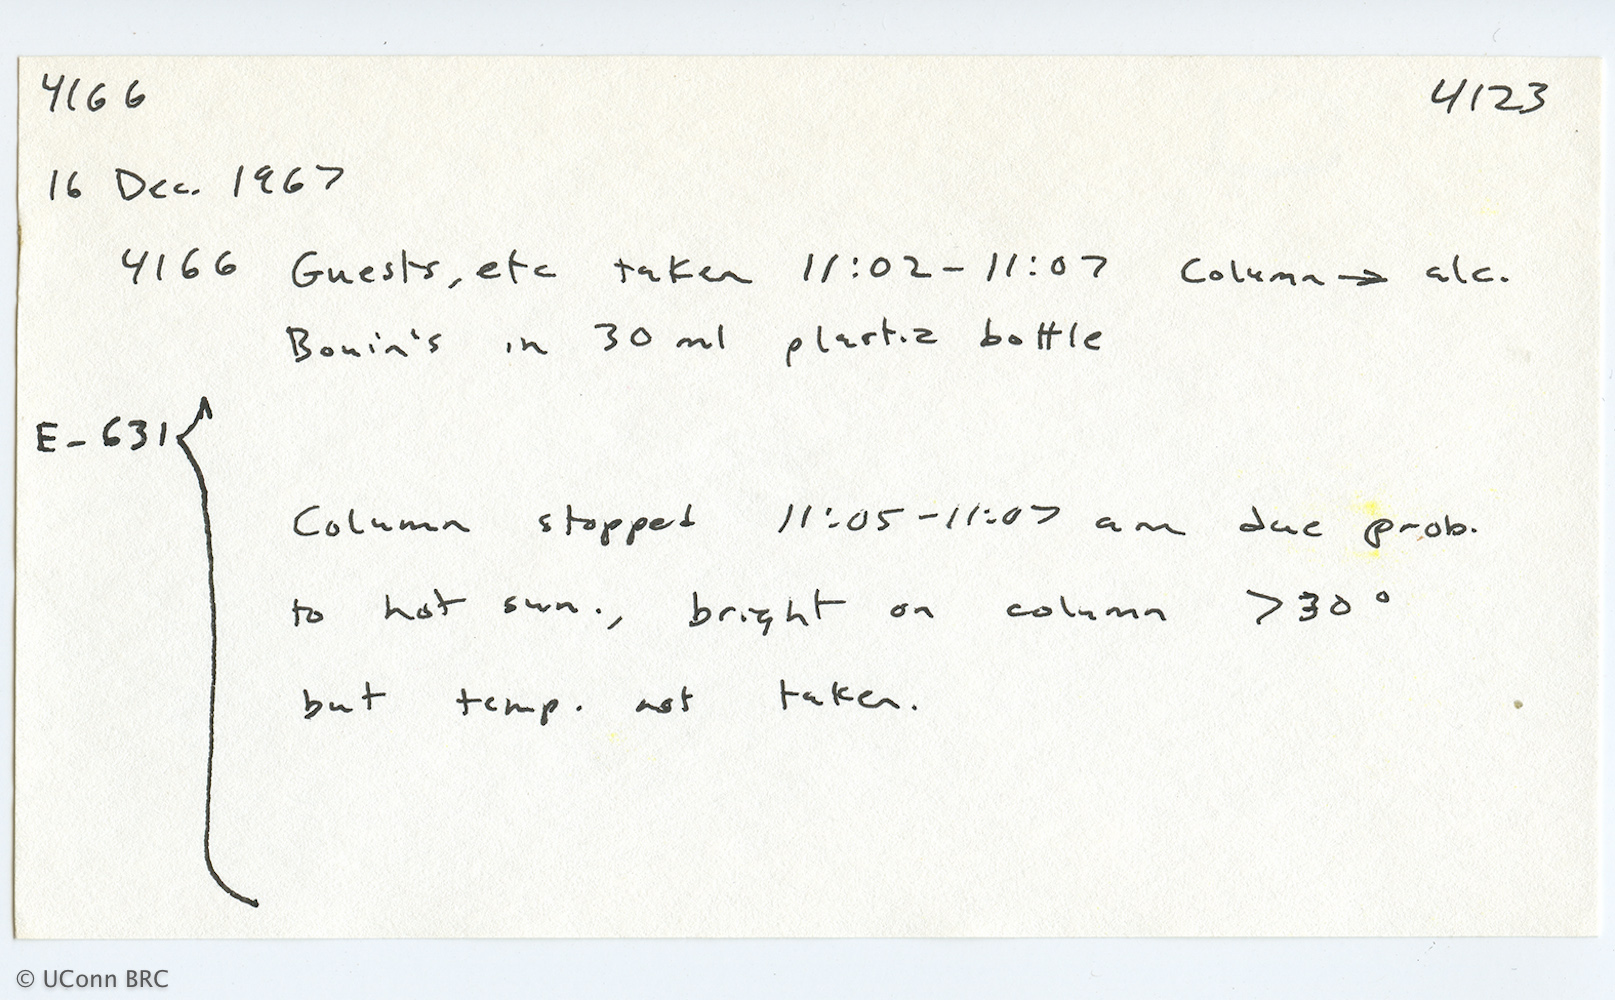 4166 4123
16 Dec. 1967
4166 Guests, etc taken 11:02-11:07 Column → alc.
Bouin's in 30 ml plastic bottle
E-631
Column stopped 11:05-11:07 am due prob.
to hot sun., bright on column >30°
but temp. not taken.
© UConn BRC